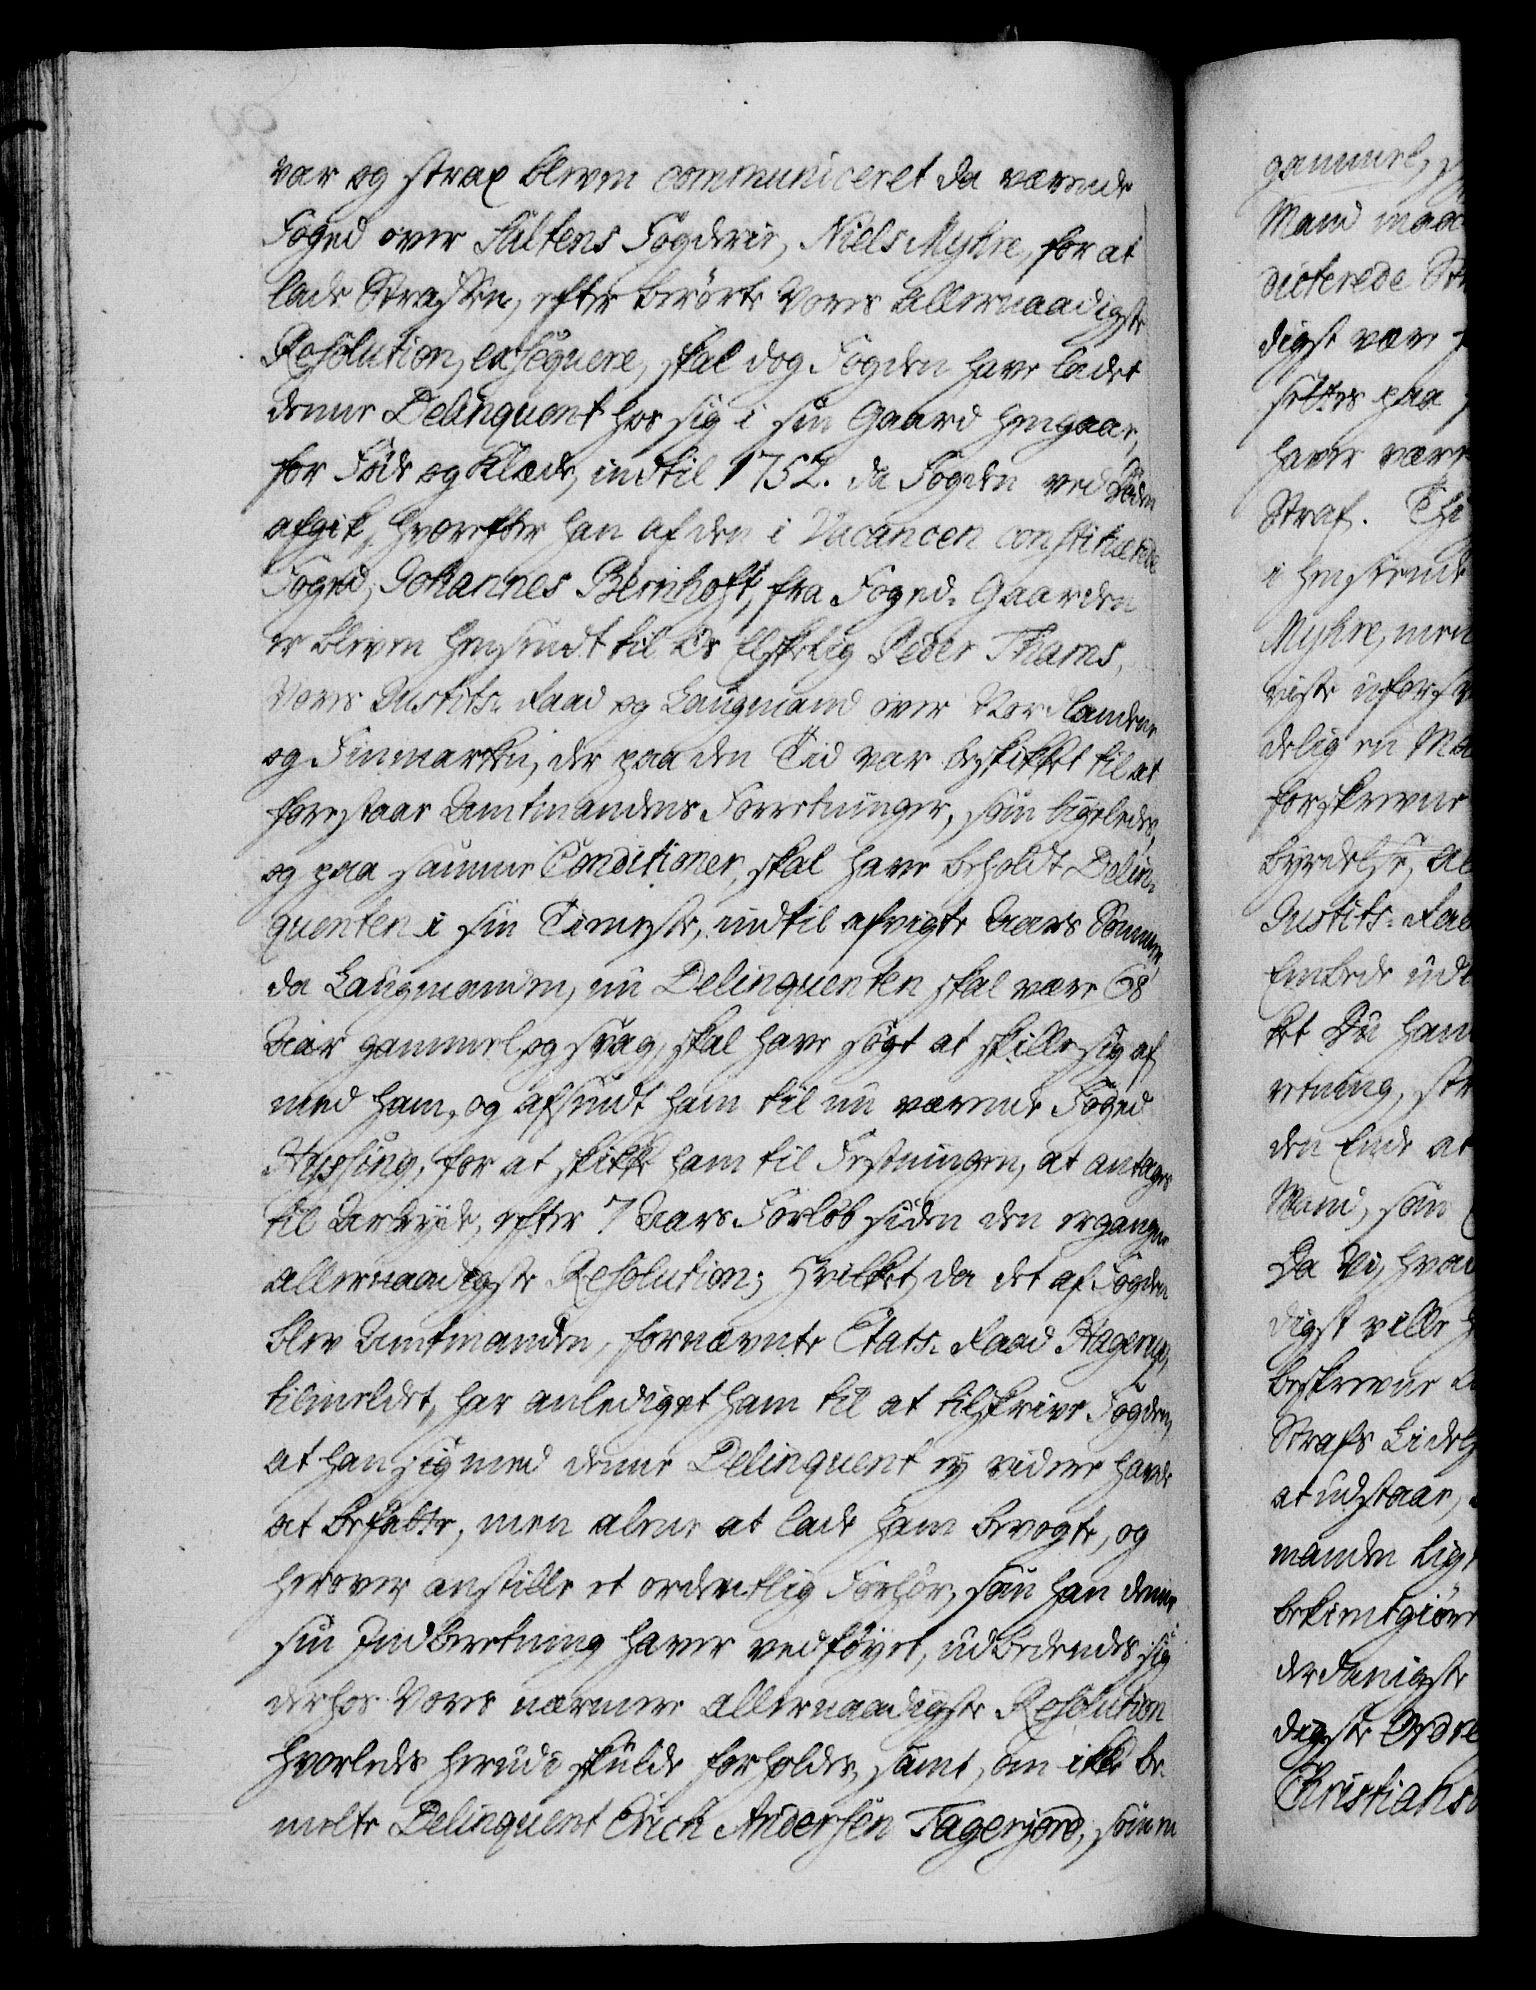 var og strax bleven communiceret da værende
Foged over Saltens Fogderie, Niels Myhre, for at
lade Straffen, efter berørte Vores allernaadigste
Resolution, exseqvere, skal dog Fogden have ladet
denne Delinquent hos sig i sin Gaard hengaae,
for Føde og Klæde, indtil 1752. da Fogden ved Døden
afgik, hvorefter han af den i Vacancen constituerede
Foged, Johannes Bernhoft, fra Foged-Gaarden
er bleven hensendt til Os Elskelig Peder Thams,
Vores Justits-Raad og Laugmand over Nordlandene
og Finmarken, der paa den Tid var beskikket til at
forestaae Amtmandens Forretninger, som ligeledes,
og paa samme Conditioner, skal have beholdt Delin-
quenten i sin Tieneste, indtil afvigte Aars Sommer,
da Laugmanden, nu Delinquenten skal være 68
Aar gammel og svag, skal have søgt at skille sig af
med ham, og afsendt ham til nu værende Foged
Hysing, for at skikke ham til Fæstningen, at antages
til Arbeyde, efter 7 Aars Forløb siden den ergangne
allernaadigste Resolution; Hvilket, da det af Fogden
blev Amtmanden, fornævnte Etats-Raad Hagerup,
tilmeldet, har anlediget ham til at tilskrive Fogden,
at han sig med denne Delinquent ey videre havde
at befatte, men alene at lade ham bevogte, og
herover anstille et ordentlig Forhør, som han denne
sin Indberetning haver vedføyet, udbedendes sig
derhos Vores nærmere allernaadigste Resolution
hvorledes herudi skulde forholdes, samt, om ikke be-
melte Delinquent Erich Andersen Fagerjord, som en
gammel,
Mand maa
dicterede
digst være
settes paa
haver være
Straf. Thi
i henseende
Myhre, men
viste uforsv
delig en
forskrevne
byrdelse,
Justits-Raa
Embede ud
ket Du ham
retning,
den Ende at
Mand, som
Da Vi, hvad
digst ville
beskrevne
Straffs Lidelse
at udstaae,
manden lige
bekiendtgiøre
derdanigste
digste Ordre
Christiansb